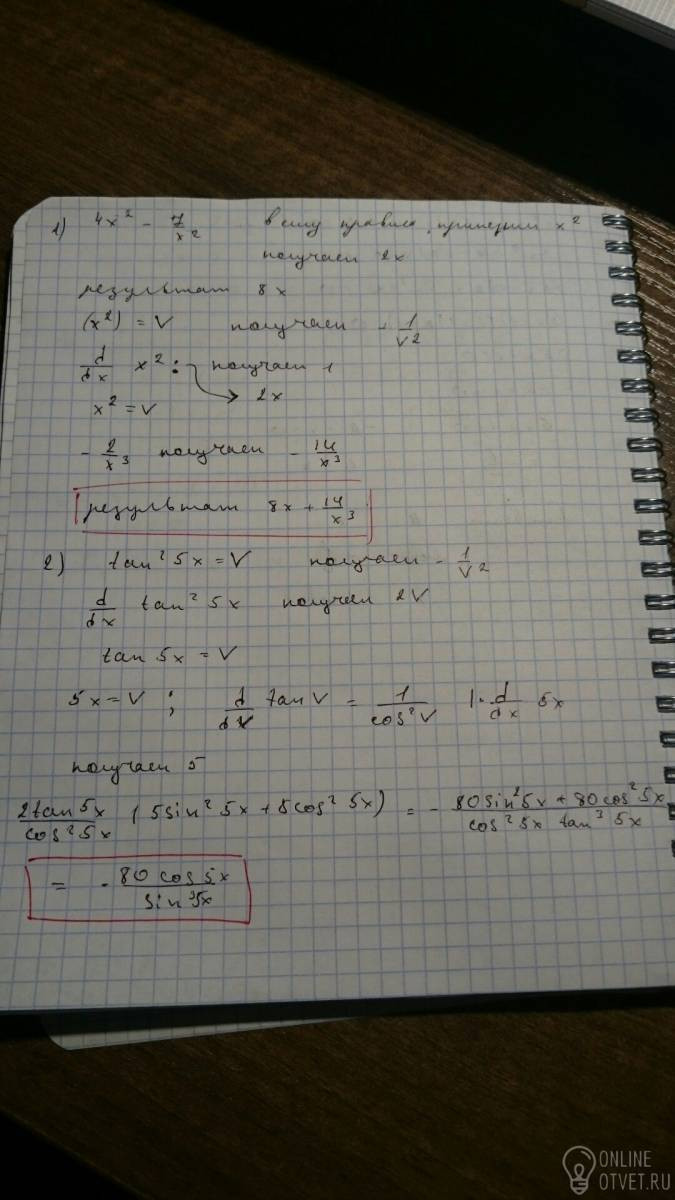 1) 4x² - 7/x² в силу правила, принцип x²
получаем 2x
результат 8x
(x²) = V получаем - 1/V²
d/dx x² : получаем 1
→ 2x
x² = V
- 2/x³ получаем - 14/x³
результат 8x + 14/x³
2) tan² 5x = V получаем - 1/V²
d/dx tan² 5x получаем 2V
tan 5x = V
5x = V ; d/dV tan V = 1/cos² V d/dx 5x
получаем 5
2tan 5x/cos² 5x (5sin² 5x + 5cos² 5x) = - 80sin² 5x + 80cos² 5x/cos² 5x tan³ 5x
= - 80 cos 5x/sin³ 5x
ONLINE
OTVET.RU